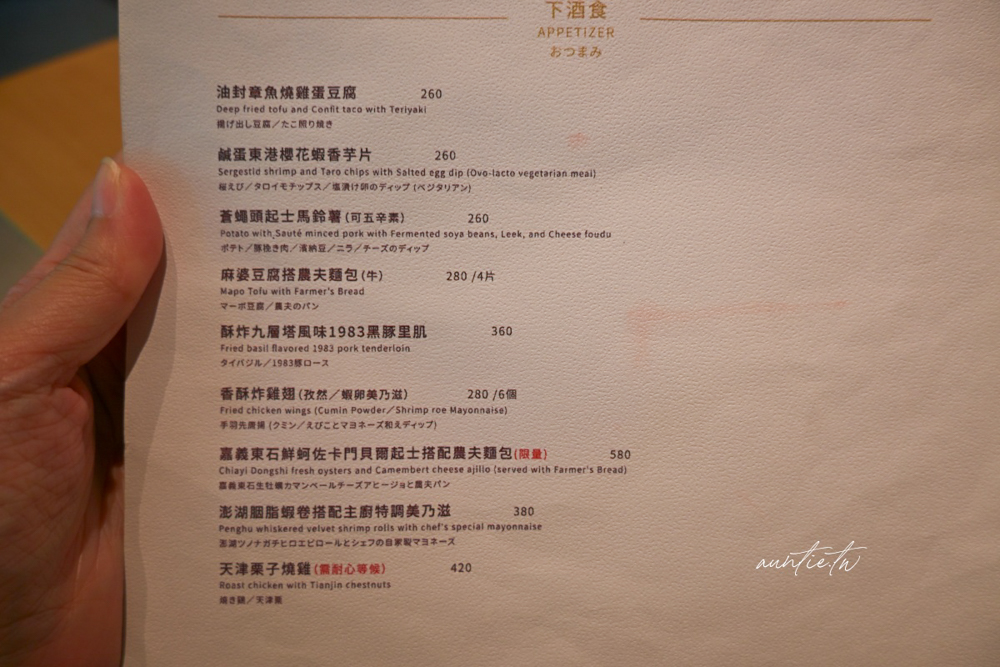 下酒食
APPETIZER
おつまみ
油封章魚燒雞蛋豆腐 260
Deep fried tofu and Confit taco with Teriyaki
揚げ出し豆腐／たこ照り焼き
鹹蛋東港櫻花蝦香芋片 260
Sergestid shrimp and Taro chips with Salted egg dip (Ovo-lacto vegetarian meal)
桜えび／タロイモチップス／塩漬け卵のディップ (ベジタリアン)
蒼蠅頭起士馬鈴薯(可五辛素) 260
Potato with Sauté minced pork with Fermented soya beans, Leek, and Cheese foudu
ポテト／豚挽き肉／濱納豆／ニラ／チーズのディップ
麻婆豆腐搭農夫麵包(牛) 280 /4片
Mapo Tofu with Farmer's Bread
マーボ豆腐／農夫のパン
酥炸九層塔風味1983黑豚里肌 360
Fried basil flavored 1983 pork tenderloin
タイバジル／1983豚ロース
香酥炸雞翅(孜然／蝦卵美乃滋) 280 /6個
Fried chicken wings (Cumin Powder／Shrimp roe Mayonnaise)
手羽先唐揚 (クミン／えびことマヨネーズ和えディップ)
嘉義東石鮮蚵佐卡門貝爾起士搭配農夫麵包(限量) 580
Chiayi Dongshi fresh oysters and Camembert cheese ajillo (served with Farmer's Bread)
嘉義東石生牡蠣カマンベールチーズアヒージョと農夫パン
澎湖胭脂蝦卷搭配主廚特調美乃滋 380
Penghu whiskered velvet shrimp rolls with chef's special mayonnaise
澎湖ツノナガチヒロエビロールとシェフの自家製マヨネーズ
天津栗子燒雞(需耐心等候) 420
Roast chicken with Tianjin chestnuts
焼き鶏／天津栗
auntie.tw